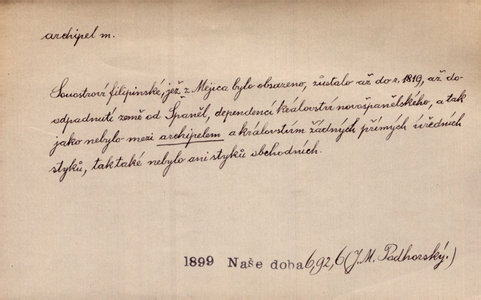 archipel m.
Souostroví filipinské, jež z Mejica bylo obsazeno, zůstalo až do r. 1819, až do
odpadnutí země od Španěl, dependencí království novošpanělského, a tak
jako nebylo mezi archipelem a královstvím žádných přímých úředních
styků, tak také nebylo ani styků obchodních.
1899 Naše doba 6,92,6 (J. M. Podhorský.)